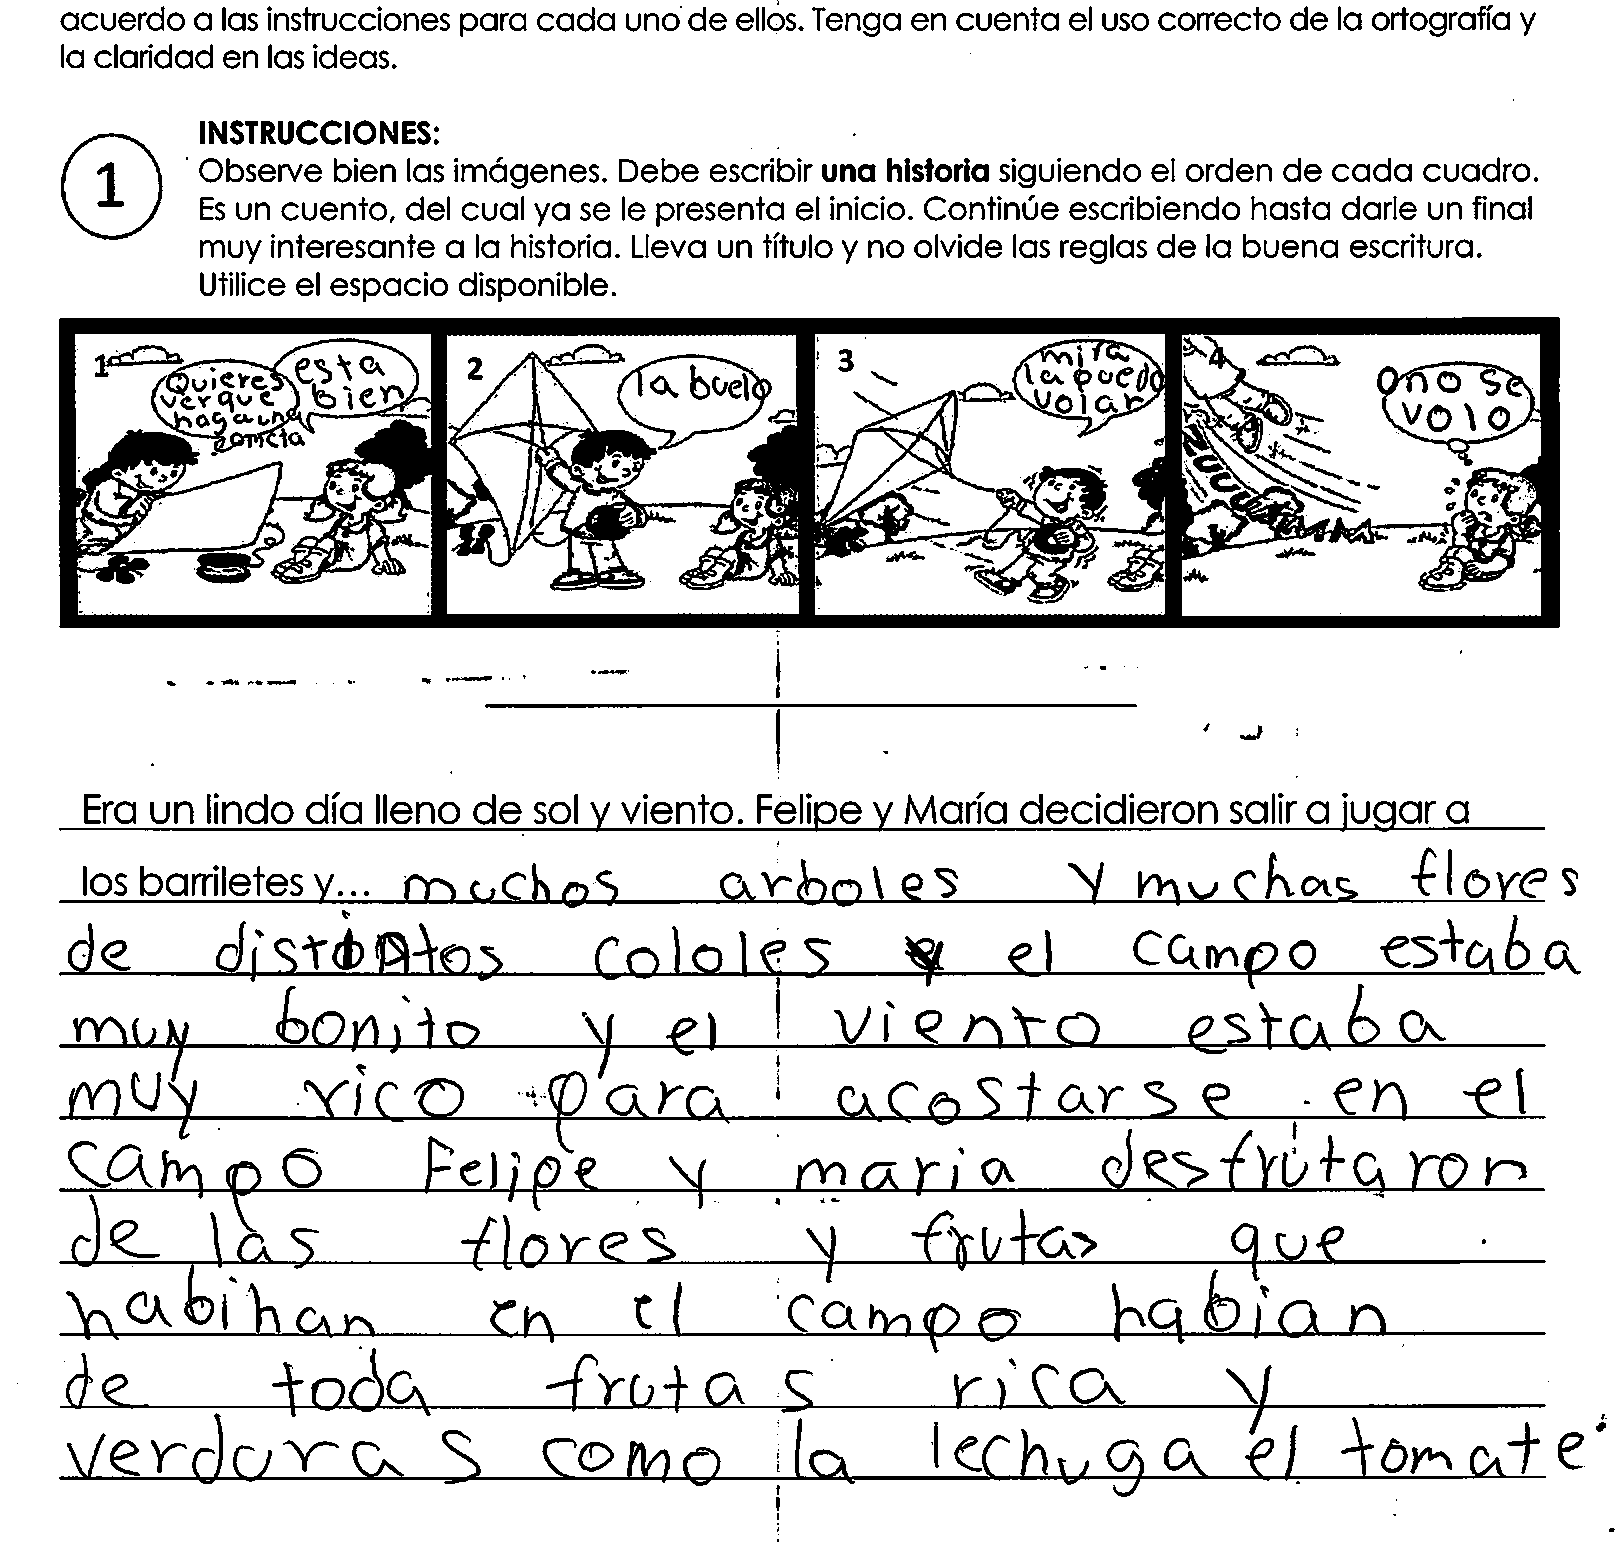 acuerdo a las instrucciones para cada uno de ellos. Tenga en cuenta el uso correcto de la ortografía y
la claridad en las ideas.
INSTRUCCIONES:
1
Observe bien las imágenes. Debe escribir una historia siguiendo el orden de cada cuadro.
Es un cuento, del cual ya se le presenta el inicio. Continúe escribiendo hasta darle un final
muy interesante a la historia. Lleva un título y no olvide las reglas de la buena escritura.
Utilice el espacio disponible.
1
Quieres
ver que
haga una
esta
bien
2
la buelo
3
mira
la puedo
volar
4
ono se
volo
ZUUUU
Era un lindo día lleno de sol y viento. Felipe y María decidieron salir a jugar a
los barriletes y... muchos arboles y muchas flores
de distintos cololes el campo estaba
muy bonito y el viento estaba
muy rico para acostarse en el
campo Felipe y maria desfrutaron
de las flores y frutas que
habihan en el campo habian
de toda frutas rica y
verduras como la lechuga el tomate